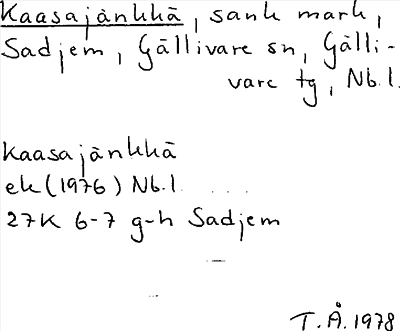 Kaasajänkkä, sank mark,
Sadjem, Gällivare sn, Gälli-
vare tg, Nb.l.
Kaasajänkkä
ek (1976) Nb.l.
27K 6-7 g-h Sadjem
T.Å. 1978